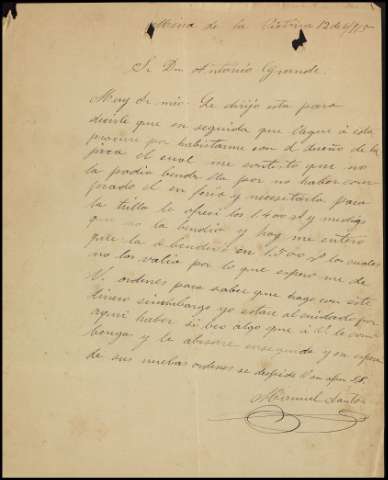 Mina de la Victoria 12 de
Sr. Dn. Antonio Grande.
Muy Sr. mio: Le dirijo esta para
decirle que en seguida que llegue á esta
por habistarme con el dueño de la
el cual me contestó que no
la podia bender ella por no haber com
prado el en feria y necesitarla para
la trilla le ofreci los 1400 y medios
que no la bindio y hoy me entero
que la á bendido en 1500 los cuales
no los balia por lo que espero me de
V. ordenes para saber que hago con este
dinero sinembargo yo estare al cuidado por
aqui haber si beo algo que á V. le com
benga y le abisare enseguida y en espera
de sus nuebas ordenes se despide su afmo S.S.
Manuel Santos